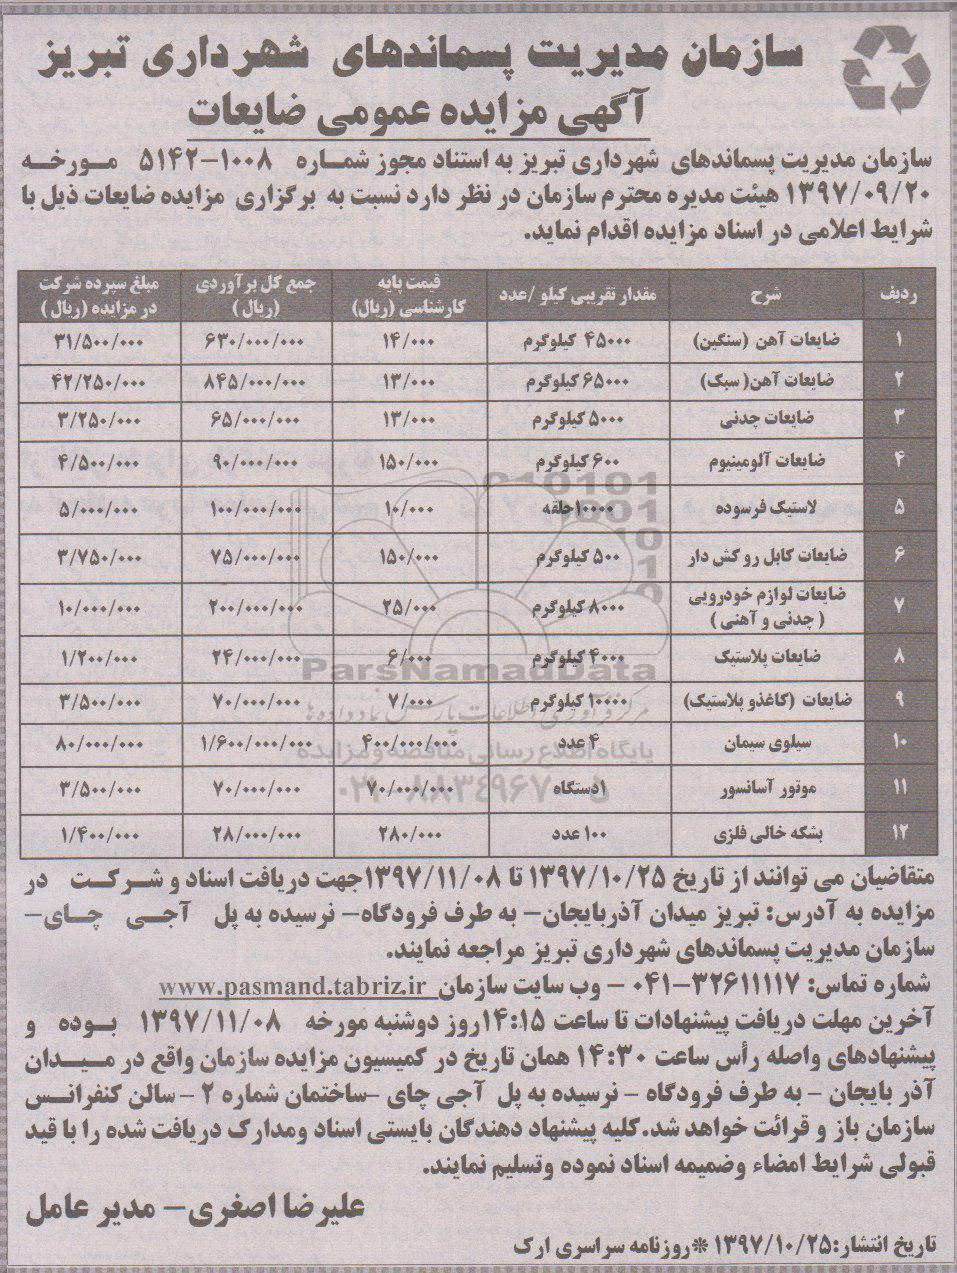 سازمان مدیریت پسماندهای شهرداری تبریز
آگهی مزایده عمومی ضایعات
سازمان مدیریت پسماندهای شهرداری تبریز به استناد مجوز شماره ۱۰۰۸-۵۱۴۲ مورخه
۱۳۹۷/۰۹/۲۰ هیئت مدیره محترم سازمان در نظر دارد نسبت به برگزاری مزایده ضایعات ذیل با
شرایط اعلامی در اسناد مزایده اقدام نماید.
ردیف شرح مقدار تقریبی کیلو /عدد قیمت پایه کارشناسی (ریال) جمع کل برآوردی (ریال) مبلغ سپرده شرکت در مزایده (ریال)
۱ ضایعات آهن (سنگین) ۴۵۰۰۰ کیلوگرم ۱۴/۰۰۰ ۶۳۰/۰۰۰/۰۰۰ ۳۱/۵۰۰/۰۰۰
۲ ضایعات آهن( سبک) ۶۵۰۰۰ کیلوگرم ۱۳/۰۰۰ ۸۴۵/۰۰۰/۰۰۰ ۴۲/۲۵۰/۰۰۰
۳ ضایعات چدنی ۵۰۰۰ کیلوگرم ۱۳/۰۰۰ ۶۵/۰۰۰/۰۰۰ ۳/۲۵۰/۰۰۰
۴ ضایعات آلومینیوم ۶۰۰ کیلوگرم ۱۵۰/۰۰۰ ۹۰/۰۰۰/۰۰۰ ۴/۵۰۰/۰۰۰
۵ لاستیک فرسوده ۱۰۰۰۰حلقه ۱۰/۰۰۰ ۱۰۰/۰۰۰/۰۰۰ ۵/۰۰۰/۰۰۰
۶ ضایعات کابل رو کش دار ۵۰۰ کیلوگرم ۱۵۰/۰۰۰ ۷۵/۰۰۰/۰۰۰ ۳/۷۵۰/۰۰۰
۷ ضایعات لوازم خودرویی ( چدنی و آهنی ) ۸۰۰۰ کیلوگرم ۲۵/۰۰۰ ۲۰۰/۰۰۰/۰۰۰ ۱۰/۰۰۰/۰۰۰
۸ ضایعات پلاستیک ۴۰۰۰ کیلوگرم ۶/۰۰۰ ۲۴/۰۰۰/۰۰۰ ۱/۲۰۰/۰۰۰
۹ ضایعات (کاغذو پلاستیک) ۱۰۰۰۰ کیلوگرم ۷/۰۰۰ ۷۰/۰۰۰/۰۰۰ ۳/۵۰۰/۰۰۰
۱۰ سیلوی سیمان ۴ عدد ۴۰۰/۰۰۰/۰۰۰ ۱/۶۰۰/۰۰۰/۰۰۰ ۸۰/۰۰۰/۰۰۰
۱۱ موتور آسانسور ۱دستگاه ۷۰/۰۰۰/۰۰۰ ۷۰/۰۰۰/۰۰۰ ۳/۵۰۰/۰۰۰
۱۲ بشکه خالی فلزی ۱۰۰ عدد ۲۸۰/۰۰۰ ۲۸/۰۰۰/۰۰۰ ۱/۴۰۰/۰۰۰
ParsNamadData
مرکز فرآوری اطلاعات پارس نماد داده ها
پایگاه اطلاع رسانی مناقصه و مزایده
۰۲۱-۸۸۳۴۹۶۷۰-۵
متقاضیان می توانند از تاریخ ۱۳۹۷/۱۰/۲۵ تا ۱۳۹۷/۱۱/۰۸جهت دریافت اسناد و شرکت در
مزایده به آدرس: تبریز میدان آذربایجان- به طرف فرودگاه- نرسیده به پل آجی چای-
سازمان مدیریت پسماندهای شهرداری تبریز مراجعه نمایند.
شماره تماس: ۳۲۶۱۱۱۱۷-۰۴۱ - وب سایت سازمان www.pasmand.tabriz.ir
آخرین مهلت دریافت پیشنهادات تا ساعت ۱۴:۱۵روز دوشنبه مورخه ۱۳۹۷/۱۱/۰۸ بوده و
پیشنهادهای واصله رأس ساعت ۱۴:۳۰ همان تاریخ در کمیسیون مزایده سازمان واقع در میدان
آذر بایجان - به طرف فرودگاه - نرسیده به پل آجی چای -ساختمان شماره ۲ - سالن کنفرانس
سازمان باز و قرائت خواهد شد.کلیه پیشنهاد دهندگان بایستی اسناد ومدارک دریافت شده را با قید
قبولی شرایط امضاء وضمیمه اسناد نموده وتسلیم نمایند.
علیرضا اصغری- مدیر عامل
تاریخ انتشار:۱۳۹۷/۱۰/۲۵ *روزنامه سراسری ارک